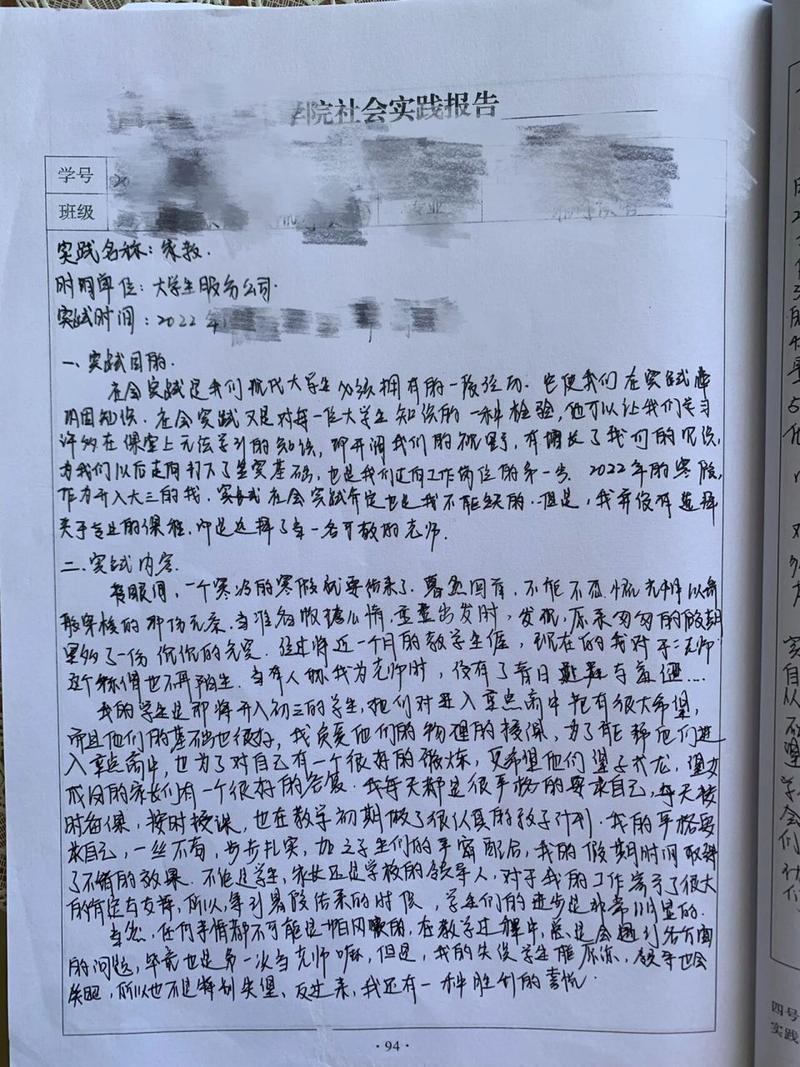 学院社会实践报告
学号
班级 专业
实践名称：家教.
时间单位：大学生服务公司.
实践时间：2022年
一、实践目的.
社会实践是我们现代大学生必须拥有的一段经历. 它使我们在实践中
巩固知识. 社会实践又是对每一位大学生知识的一种检验, 他可以让我们学习
许多在课堂上无法学到的知识, 即开阔我们的视野, 有增长了我们的见识,
为我们以后走向打下了坚实基础, 也是我们迈向工作岗位的第一步. 2022年的寒假,
作为升入大三的我, 社会实践肯定也是我不能缺的. 但是, 我并没有选择
关于专业的课程, 而是选择了当一名家教的老师.
二.实践内容.
转眼间, 一个寒冷的寒假就要结束了. 蓦然回首, 不能不
当准备收拾心情, 重整出发时, 发现, 原来匆匆的假期
里多了一份 充实. 经过将近一个月的教学生涯, 现在的我对于"老师"
这个称谓也不再陌生. 当有人称我为老师时, 没有了昔日 与羞涩...
我的学生是即将升入初三的学生, 他们对进入重点高中抱有很大希望,
而且他们的基础也很好, 我负责他们的物理的授课, 为了能帮他们进
入重点高中, 也为了对自己有一个很好的锻炼, 更希望他们望子成龙, 望女
成凤的家长们有一个很好的答复. 我每天都是很严格的要求自己, 每天按
时备课, 按时授课, 也在教学初期做了很认真的教学计划. 我的严格要
求自己, 一丝不苟, 步步扎实, 加之学生们的 配合, 我的假期时间取得
了不错的效果. 不论是学生, 家长还是学校的领导人, 对于我的工作寄予了很大
的肯定与支持, 所以, 等到暑假结束的时候, 学生们的进步是非常明显的.
当然, 任何事情都不可能是一帆风顺的, 在教学过程中, 总是会遇到各方面
的问题, 毕竟也是第一次当老师嘛, 但是, 我的失误学生能原谅, 领导也会
所以也不是特别失望, 反过来, 我还有一种胜利的喜悦.
· 94 ·
四号
实践